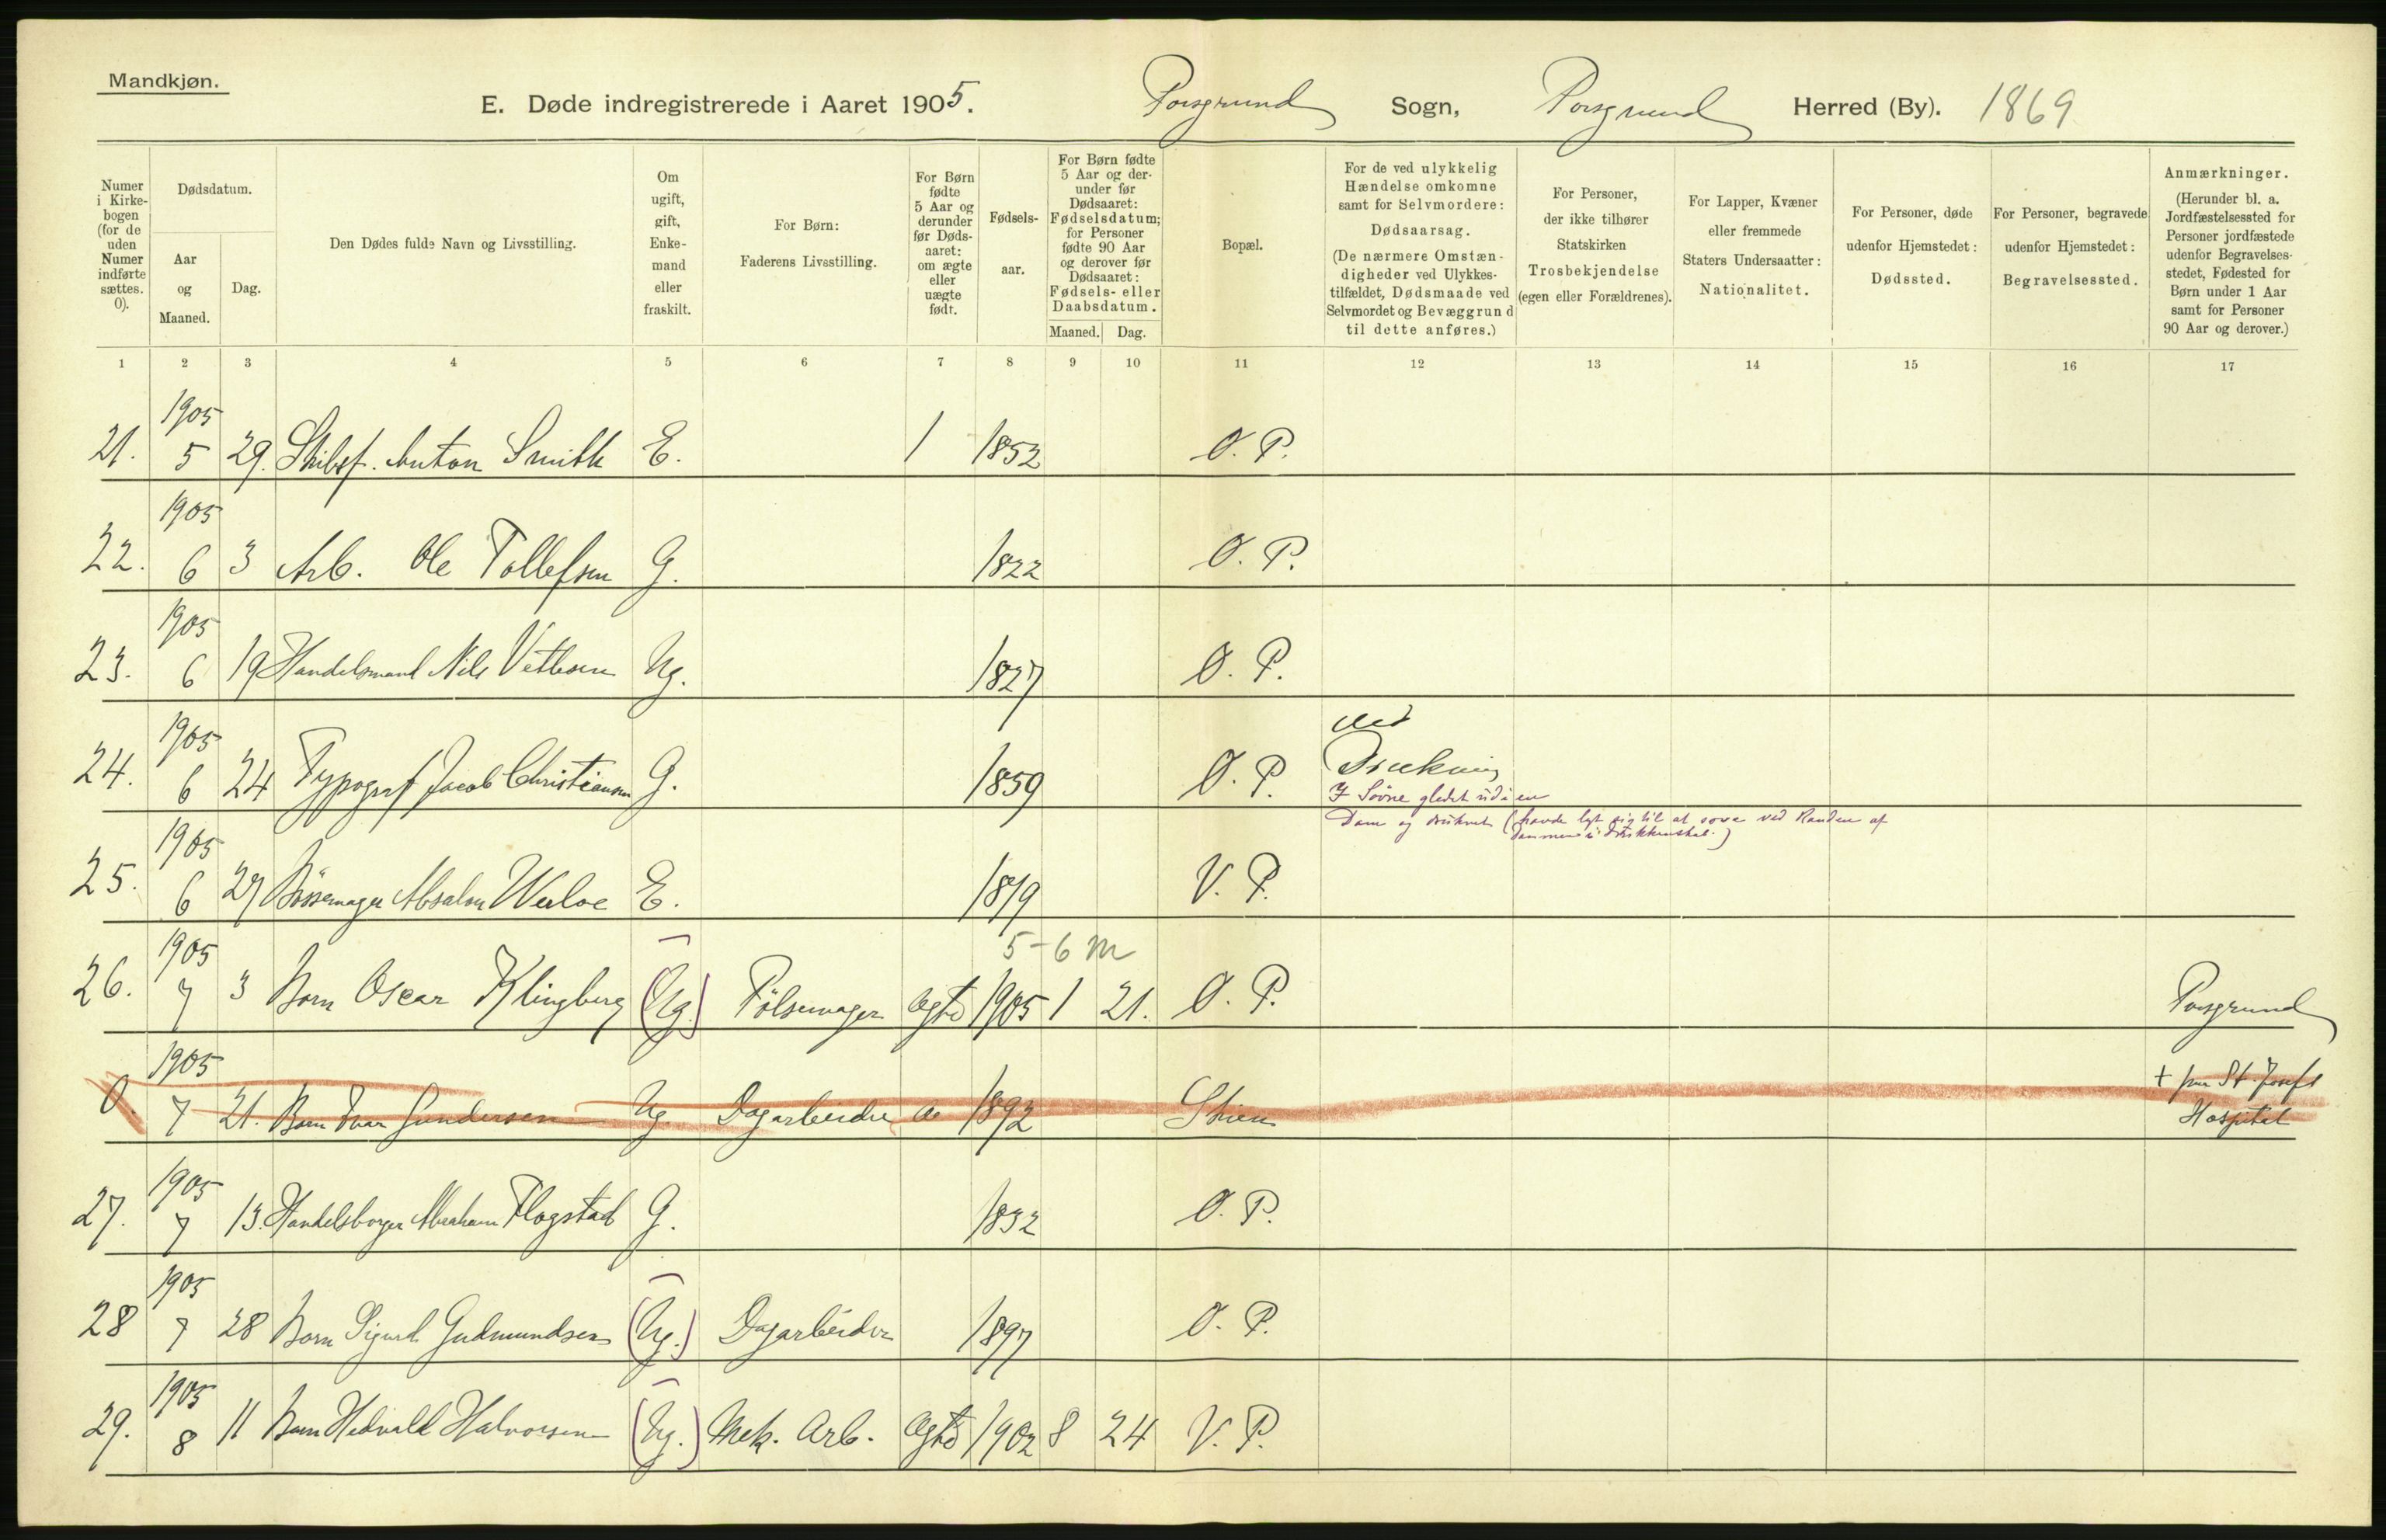 Mandkjøn.
E. Døde indregistrerede i Aaret 1905. Porsgrund Sogn, Porsgrund Herred (By). 1869
Numer i Kirkebogen (for de uden Numer indførte sættes. 0).
Dødsdatum.
Aar og Maaned.
Dag.
Den Dødes fulde Navn og Livsstilling.
Om ugift, gift, Enkemand eller fraskilt.
For Børn: Faderens Livsstilling.
For Børn fødte 5 Aar og derunder før Dødsaaret: om ægte eller uægte født.
Fødselsaar.
For Børn fødte 5 Aar og derunder før Dødsaaret: Fødselsdatum; for Personer fødte 90 Aar og derover før Dødsaaret: Fødsels- eller Daabsdatum.
Maaned. Dag.
Bopæl.
For de ved ulykkelig Hændelse omkomne samt for Selvmordere: Dødsaarsag. (De nærmere Omstændigheder ved Ulykkestilfældet, Dødsmaade ved Selvmordet og Bevæggrund til dette anføres.)
For Personer, der ikke tilhører Statskirken Trosbekjendelse (egen eller Forældrenes).
For Lapper, Kvæner eller fremmede Staters Undersaatter: Nationalitet.
For Personer, døde udenfor Hjemstedet: Dødssted.
For Personer, begravede udenfor Hjemstedet: Begravelsessted.
Anmærkninger. (Herunder bl. a. Jordfæstelsessted for Personer jordfæstede udenfor Begravelsesstedet, Fødested for Børn under 1 Aar samt for Personer 90 Aar og derover.)
1 2 3 4 5 6 7 8 9 10 11 12 13 14 15 16 17
1905
21. 5 29. Skibsf. Anton Smith E. 1 1852 O. P.
1905
22. 6 3 Arb. Ole Tollefsen G. 1822 O. P.
1905
23. 6 19 Handelsmand Nils Vetlesen Ug. 1827 O. P.
1905 ved
24. 6 24 Typograf Jacob Christiansen G. 1859 O. P. Drukning
I Søvne gledet ud i en
Dam og druknet (havde lagt sig til at sove ved Randen af
Dammen i Drikkenskab.)
1905
25. 6 27 Bøssemager Absalon Werloe E. 1819 V. P.
1905 5-6 m
26. 7 3 Barn Oscar Klingberg (Ug.) Pølsemager Ægte 1905 1 21. O. P. Porsgrund
1905 + paa St. Josefs
0. 7 21. Barn Ivar Gundersen Ug. Dagarbeider Æ 1892 Skien Hospital
1905
27. 7 13. Handelsborger Abraham Flogstad G. 1832 O. P.
1905
28 7 28 Barn Sigurd Gudmundsen (Ug.) Dagarbeider 1897 O. P.
1905
29. 8 11 Barn Hedvald Halvorsen (Ug.) Mek. Arb. Ægte 1902 8 24 V. P.